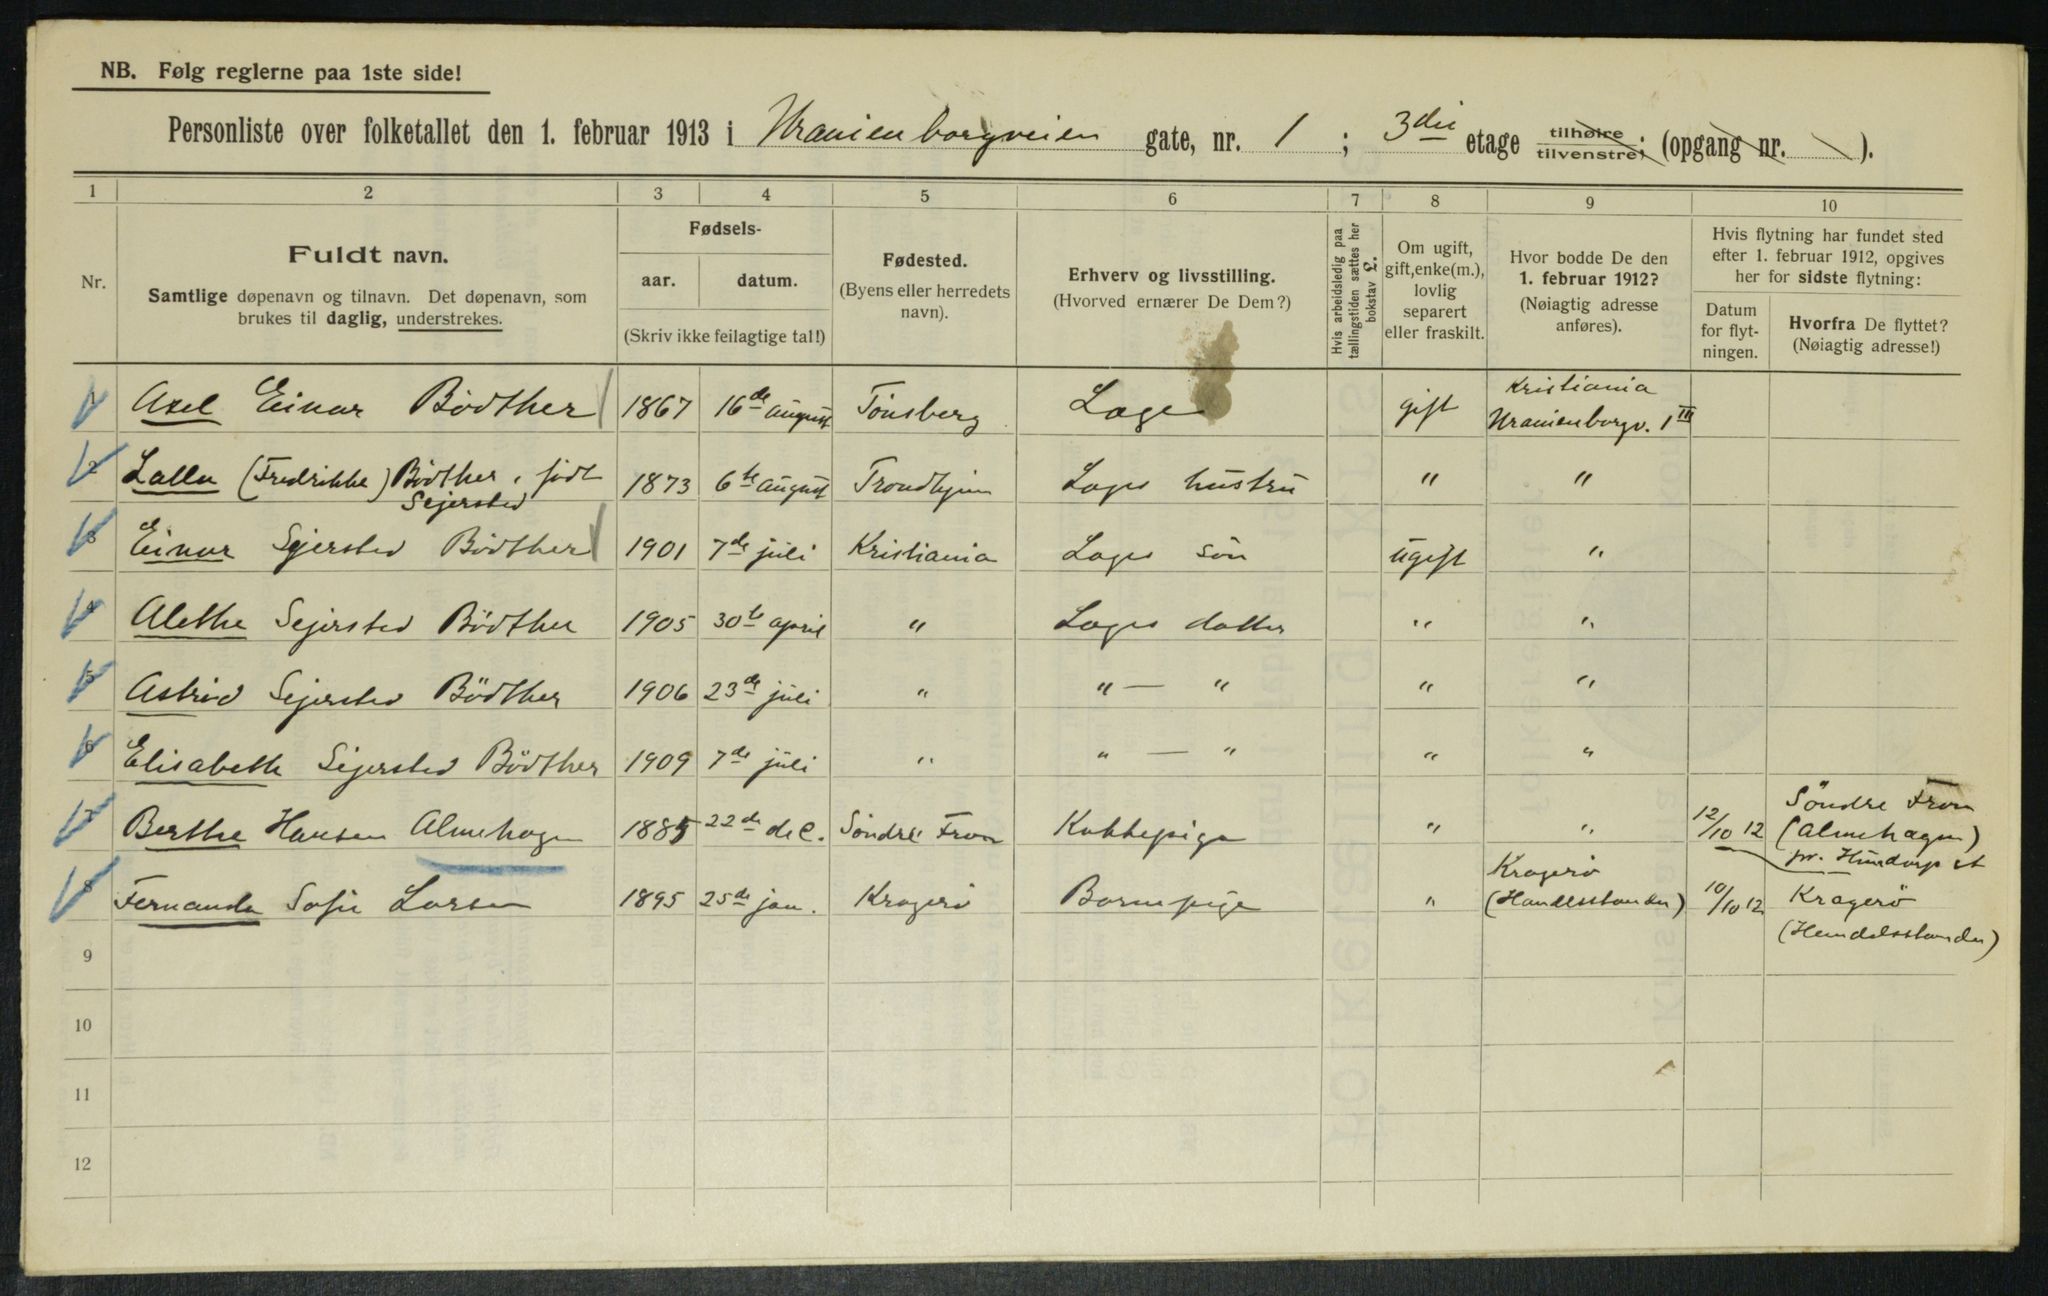 NB. Følg reglerne paa 1ste side!
Personliste over folketallet den 1. februar 1913 i Uranienborgveien gate, nr. 1 ; 3die etage tilhøire tilvenstre; (opgang nr. ).
1 2 3 4 5 6 7 8 9 10
Nr.
Fuldt navn.
Samtlige døpenavn og tilnavn. Det døpenavn, som
brukes til daglig, understrekes.
Fødsels-
aar. datum.
(Skriv ikke feilagtige tal!)
Fødested.
(Byens eller herredets
navn).
Erhverv og livsstilling.
(Hvorved ernærer De Dem?)
Hvis arbeidsledig paa
tællingstiden sættes her
bokstav L.
Om ugift,
gift, enke(m.),
lovlig
separert
eller fraskilt.
Hvor bodde De den
1. februar 1912?
(Nøiagtig adresse
anføres).
Hvis flytning har fundet sted
efter 1. februar 1912, opgives
her for sidste flytning:
Datum
for flyt-
ningen.
Hvorfra De flyttet?
(Nøiagtig adresse!)
1 Axel Einar Bödther 1867 16de august Tönsberg Læge gift Kristiania
Uranienborgv. 1 III
2 Lalla (Fredrikke) Bödther, födt
Sejersted 1873 6te august Trondhjem Læges hustru " "
3 Einar Sejersted Bödther 1901 7de juli Kristiania Læges sön ugift "
4 Alethe Sejersted Bödther 1905 30te april " Læges datter " "
5 Astrid Sejersted Bödther 1906 23de juli " " — " " "
6 Elisabeth Sejersted Bödther 1909 7de juli " " — " " "
7 Berthe Hansen Almehagen 1885 22de dec. Söndre Fron Kokkepige " " 12/10 12 Söndre Fron
(Almehagen)
pr. Hundorp st
8 Fernanda Sofie Larsen 1895 25de jan. Kragerö Barnepige " Kragerö
(Handelsstanden) 10/10 12 Kragerö
(Handelsstanden)
9
10
11
12